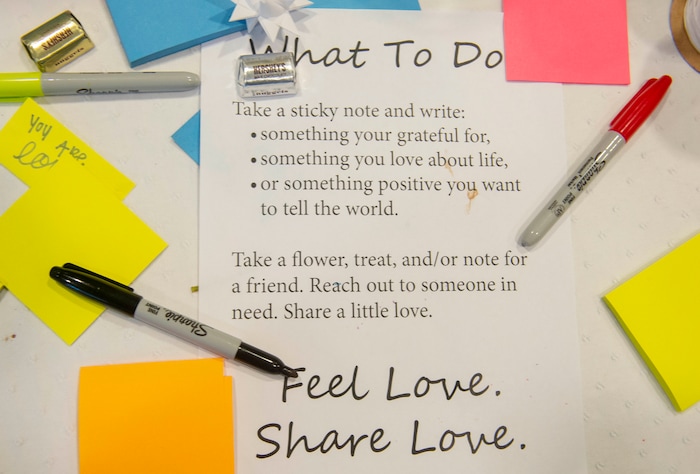 What To Do
HERSHEY'S
NUGGETS
HERSHEY'S
Sharpie
Take a sticky note and write:
• something your grateful for,
• something you love about life,
• or something positive you want
to tell the world.
You ARE
Sharpie
Take a flower, treat, and/or note for
a friend. Reach out to someone in
need. Share a little love.
Sharpie
FINE POINT
Feel Love.
Share Love.